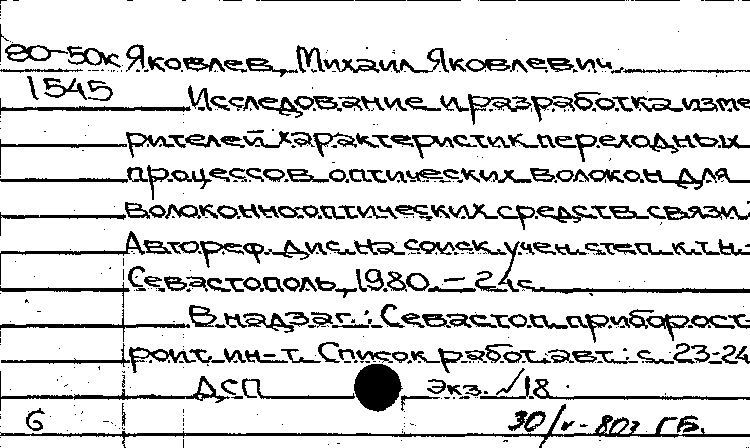 80-50к Яковлев, Михаил Яковлевич.
1545 Исследование и разработка изме
рителей характеристик переходных
процессов оптических волокон для
волоконно-оптических средств связи:
Автореф. дис. на соиск. учен. степ. к.т.н.-
Севастополь, 1980. – 24с.
В надзаг.: Севастоп. приборост-
роит. ин-т. Список работ. авт.: с. 23-24
ДСП Экз. √18.
6 30/V-80г ГБ.